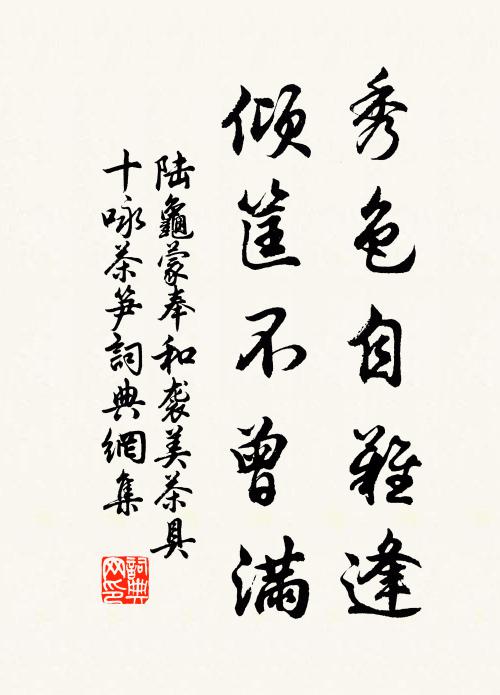 秀色自難逢
傾筐不曾滿
陆龜蒙奉和袭美茶具
十咏茶笋詞典網集
詞典
网印